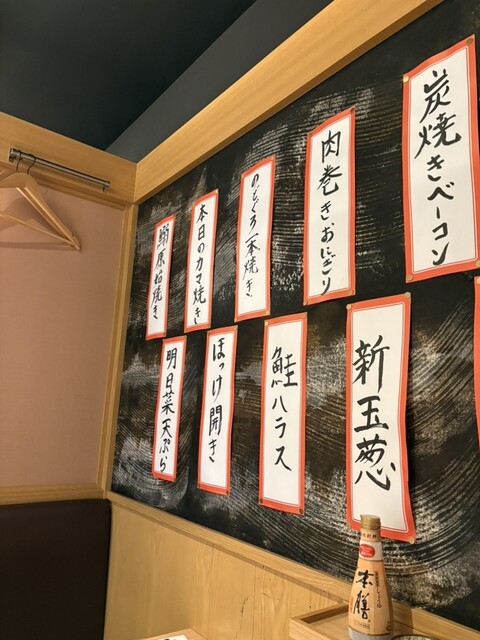 炭焼きベーコン
肉巻きおにぎり
のどぐろ一本焼き
本日のカマ焼き
原始焼き
新玉葱
鮭ハラス
ほっけ開き
明日菜天ぷら
本膳